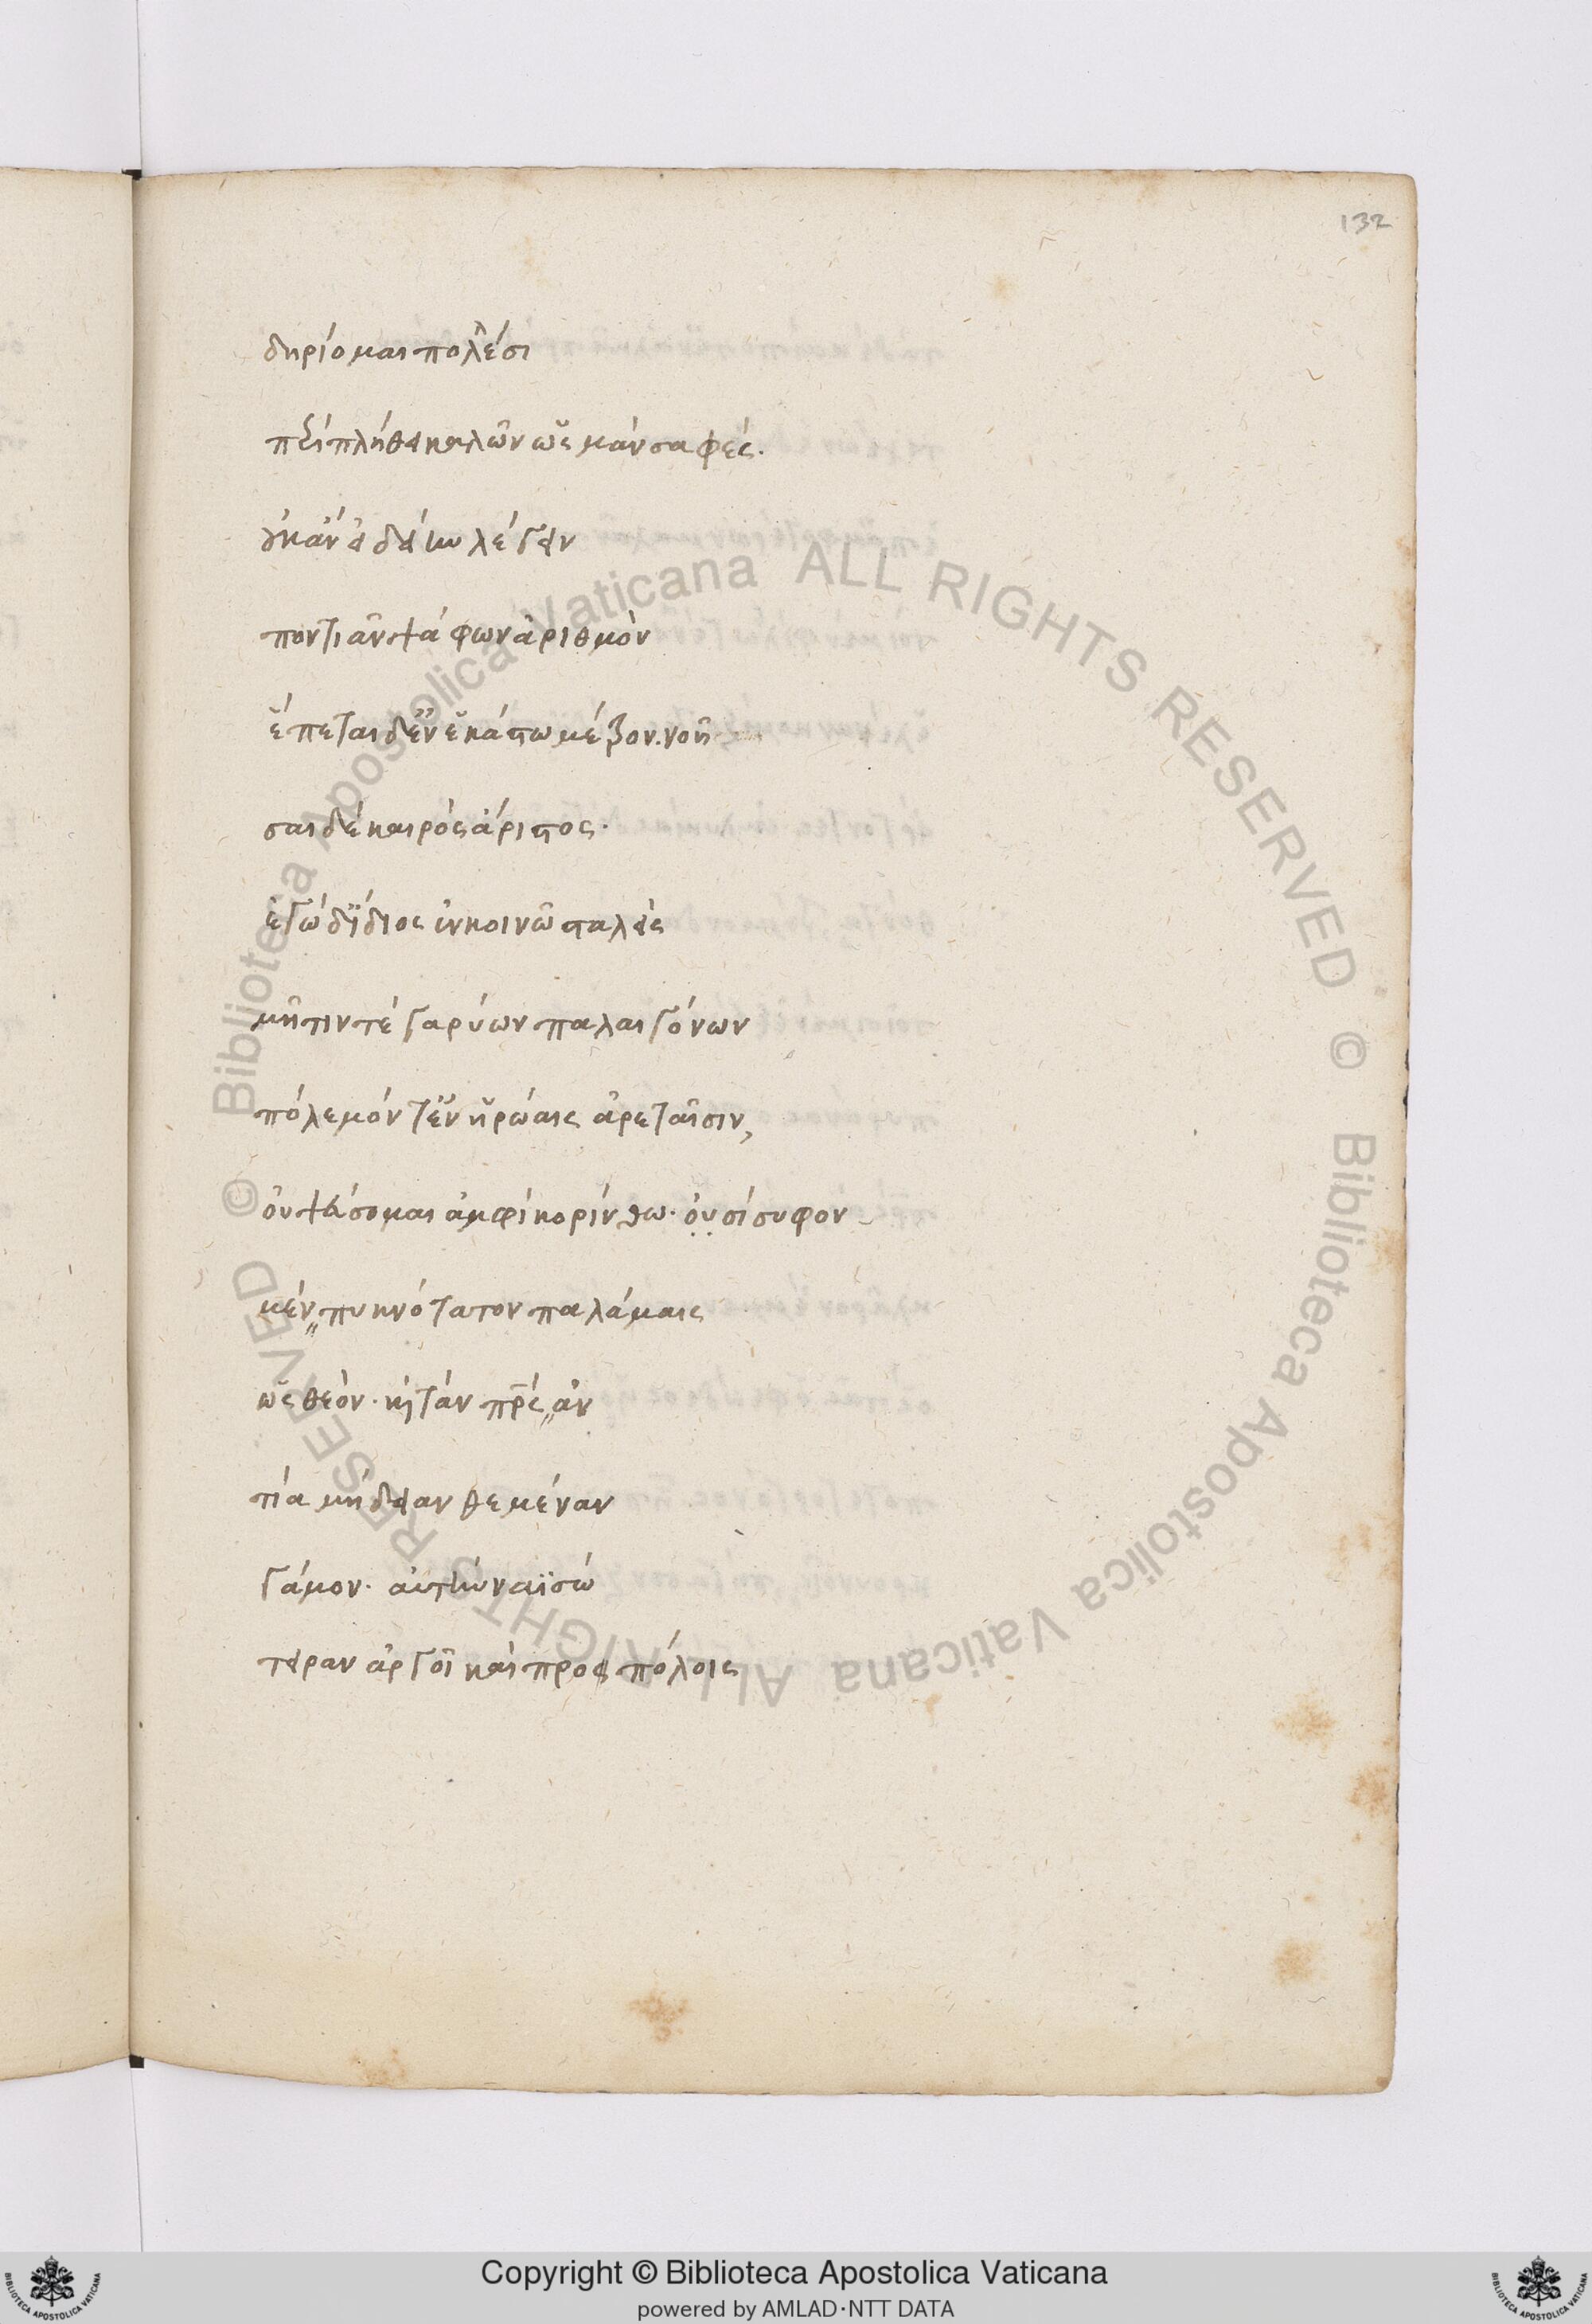 132
δηρίομαι πολέσι
περὶ πλήθει καλῶν ὡς μὰν σαφές.
οὐκ ἂν εἰδείην λέγειν
ποντιᾶν ψάφων ἀριθμὸν
ἕπεται δ' ἐν ἑκάστω μέτρον. νοῆ
σαι δὲ καιρὸς ἄριστος.
ἐγὼ δ' ἴδιος ἐν κοινῶ σταλεὶς
μῆτίν τε γαρύων παλαιγόνων
πόλεμόν τ' ἐν ἡρώαις ἀρεταῖσιν,
οὐ ψεύσομαι ἀμφὶ κορίνθω. οὐ σίσυφον
μὲν πυκνότατον παλάμαις
ὡς θεόν. καὶ τὰν πατρὸς ἀν
τία μήδειαν θεμέναν
γάμον. αὐτὴν ναῒ σώ
τειραν ἀργοῖ καὶ προσπόλοις
Biblioteca Apostolica Vaticana ALL RIGHTS RESERVED ©
Biblioteca Apostolica Vaticana ALL RIGHTS RESERVED ©
Copyright © Biblioteca Apostolica Vaticana
powered by AMLAD·NTT DATA
BIBLIOTECA APOSTOLICA VATICANA
BIBLIOTECA APOSTOLICA VATICANA